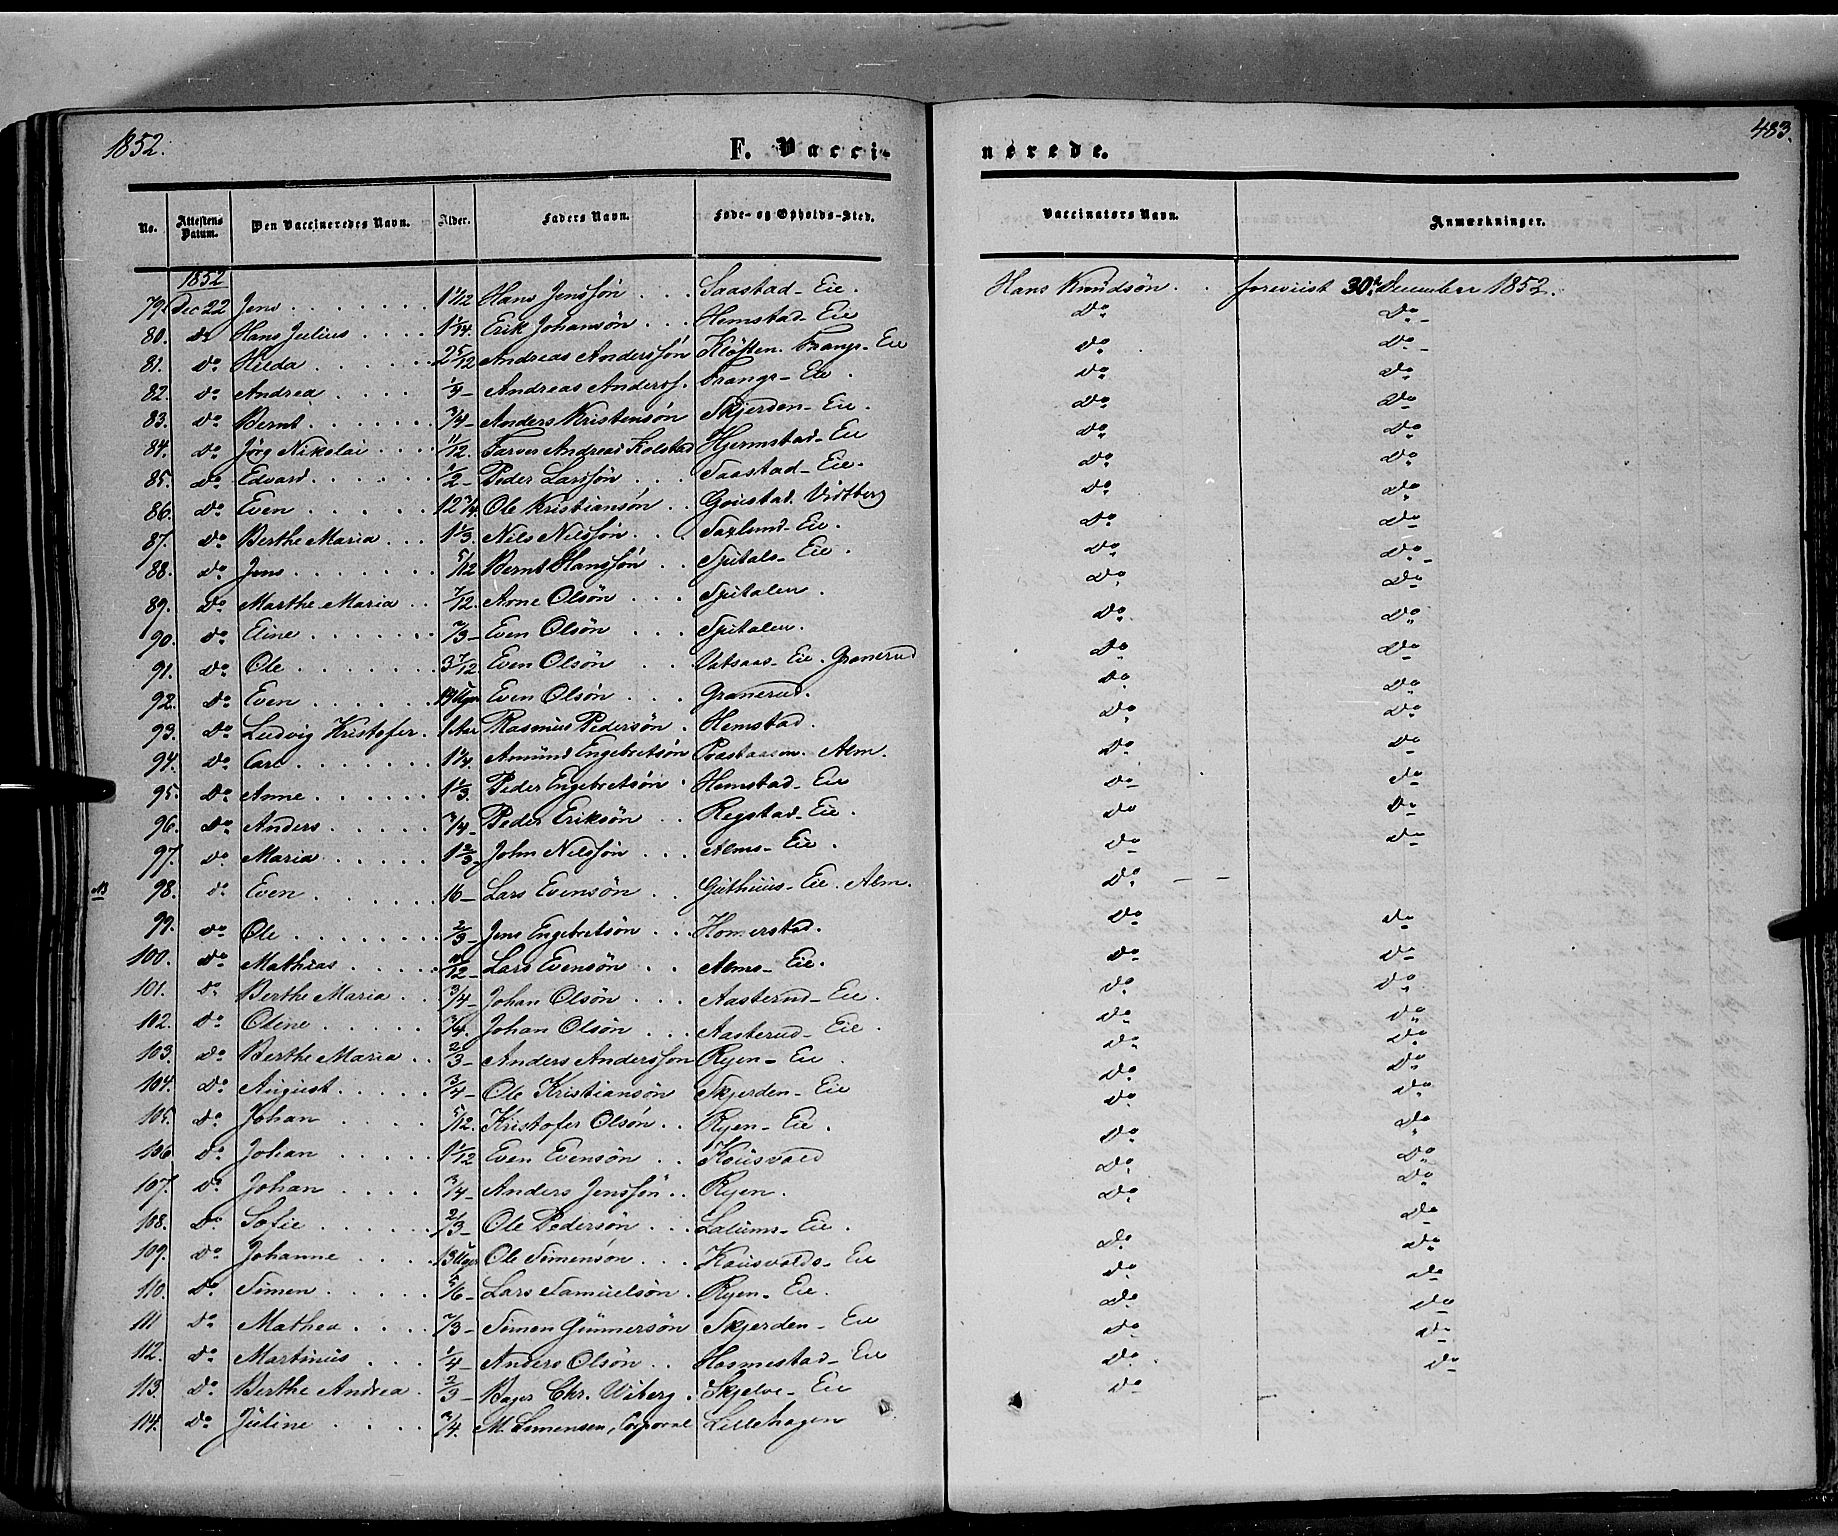 1852.
F. Vacci-
nerede.
483.
No. Attestens Datum. Den Vaccineredes Navn. Alder. Faders Navn. Føde- og Opholds-Sted. Vaccinators Navn. Anmærkninger.
1852
79. Dec 22 Jens 1 1/12 Hans Jenssøn Saastad-Eie. Hans Knudsøn foreviist 30te December 1852.
80. do Hans Julius 1 1/4. Erik Johansøn Hemstad-Eie Do Do
81. Do Hilda 2 5/12 Andreas Anderssøn Kløften. Frangs-Eie Do Do
82. Do Andrea 1/4 Andreas Anderss. Frangs-Eie. Do Do
83. Do Bernt 3/4 Anders Kristensøn Skjerden-Eie. Do Do
84. Do Jørg Nikolai 11/12 Farver Andreas Kolstad Hjermstad-Eie Do Do
85. Do Edvard 1/2 Peder Larssøn Saastad-Eie. Do Do
86. Do Even 12 3/4. Ole Kristiansøn Do Do
87. Do Berthe Maria 1 1/3. Nils Nilssøn Saxlund-Eie. Do Do
88. Do Jens 5/12 Bernt Hanssøn Spitals-Eie. Do Do
89. Do Marthe Maria 7/12. Arne Olsøn Spitalen. Do Do
90. Do Eline 2/3 Even Olsøn Spitalen. Do Do
91. Do Ole 3 7/12 Even Olsøn Eie. Granerud Do Do
92. Do Even 13 Uger Even Olsøn Granerud. Do Do
93. Do Ludvig Kristofer. 1 Aar Rasmus Pedersøn Hemstad. Do Do
94. Do Carl 1 1/4. Amund Engebretsøn Alm. Do Do
95. Do Anne 1 1/3. Peder Engebretsøn Hemstad-Eie Do Do
96. Do Anders 3/4 Peder Eriksøn Regstad-Eie. Do Do
97. Do Maria 1 2/3 John Nilssøn Alms-Eie. Do Do
NB 98. do Even 16 Lars Evensøn Guthuus-Eie. Alm. Do — —
99. do Ole 2/3 Jens Engebretsøn Homerstad. Do Do
100. Do Mathias 10/12 Lars Evensøn Alms-Eie. Do Do
101. Do Berthe Maria 3/4 Johan Olsøn Aasterud-Eie. Do Do
102. Do Oline 3/4. Johan Olsøn Aasterud-Eie. Do Do
103. Do Berthe Maria 2/3 Anders Anderssøn Ryen-Eie. Do Do
104. Do August 3/4 Ole Kristiansøn Skjerden-Eie Do Do
105. Do Johan 5/12. Kristofer Olsøn Ryen-Eie. Do Do
106 Do Johan 1 1/12 Even Evensøn Kousvold Do Do
107. Do Johan 3/4 Anders Jenssøn Ryen. Do Do
108. Do Sofie 2/3 Ole Pedersøn Lalums-Eie. Do Do
109. Do Johanne 13 Uger Ole Simensøn Kousvolds-Eie Do Do
110. Do Simen 5/6 Lars Samuelsøn Ryen-Eie. Do Do
111 Do Mathea 2/3 Simen Gunnersøn Skjerden-Eie Do Do
112. Do Martinus 1/4 Anders Olsøn Hasmestad-Eie Do Do
113. Do Berthe Andrea 2/3 Bager Chr. Wiberg. Skjelve-Eie Do Do
114. Do Juline 3/4. M. Simensen, Corporal Lillehagen Do